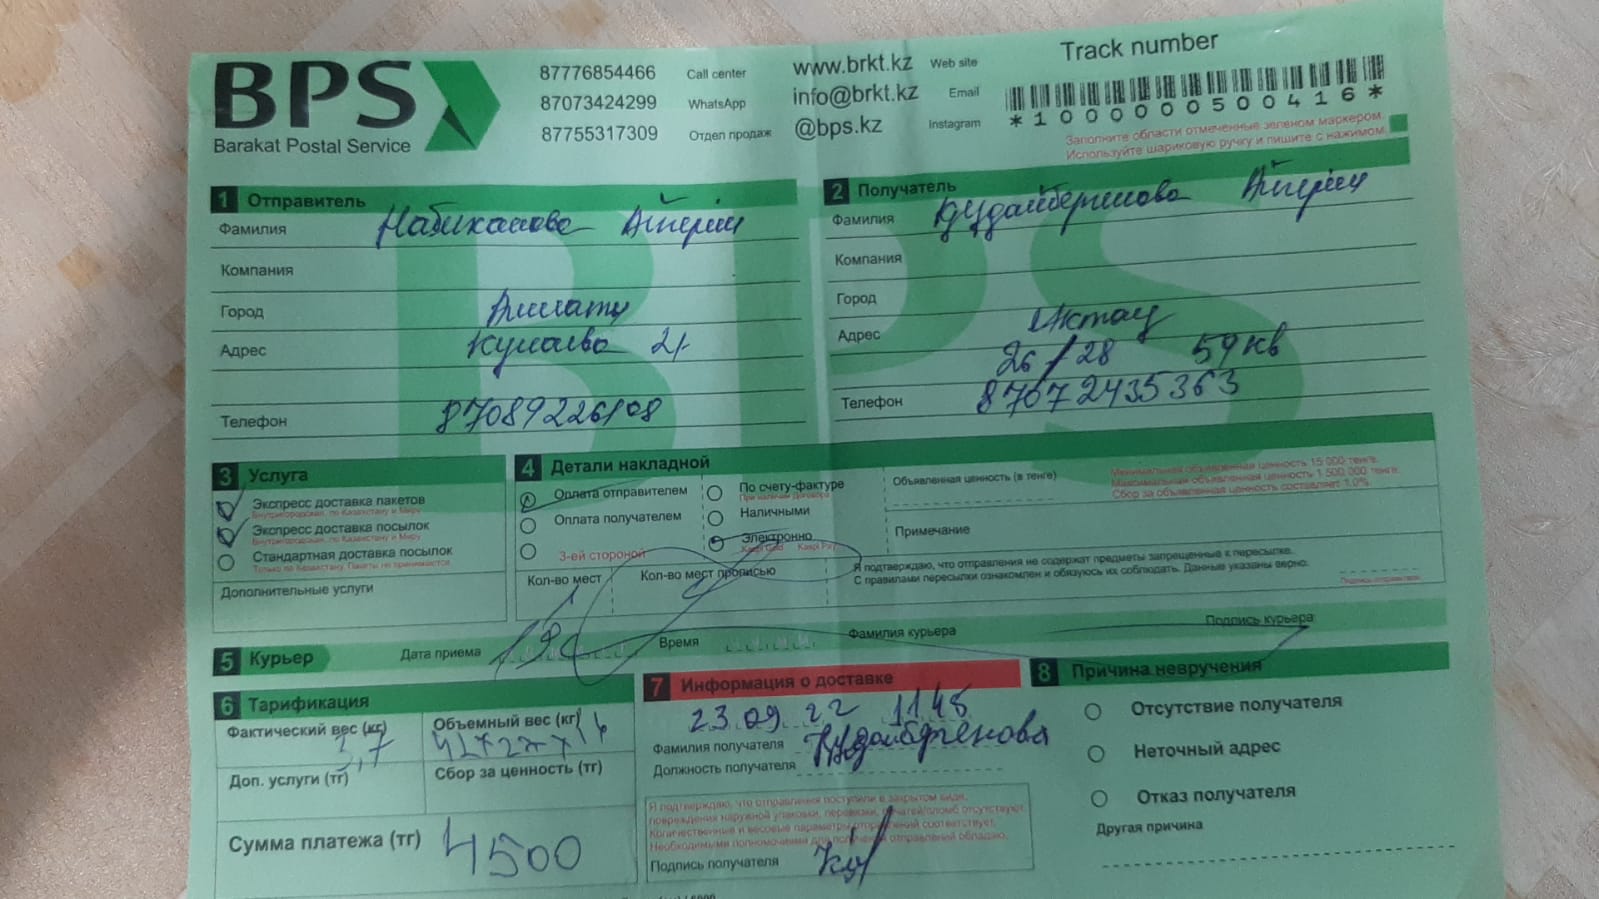 BPS
Barakat Postal Service
87776854466 Call center
87073424299 WhatsApp
87755317309 Отдел продаж
www.brkt.kz Web site
info@brkt.kz Email
@bps.kz Instagram
Track number
*10000050​0416*
Заполните области отмеченные зеленом маркером.
Используйте шариковую ручку и пишите с нажимом.
1 Отправитель
Фамилия Айгерим
Компания
Город Алматы
Адрес Кунаева 21
Телефон 87089226108
2 Получатель
Фамилия Кудайбергенова Айгерим
Компания
Город
Адрес Актау
26/28 59 кв
Телефон 87072435363
3 Услуга
Экспресс доставка пакетов
Внутригородская, по Казахстану и Миру
Экспресс доставка посылок
Внутригородская, по Казахстану и Миру
Стандартная доставка посылок
Только по Казахстану. Пакеты не принимаются
Дополнительные услуги
4 Детали накладной
Оплата отправителем
Оплата получателем
3-ей стороной
По счету-фактуре
При наличии Договора
Наличными
Электронно
Kaspi Gold Kaspi Pay
Объявленная ценность (в тенге)
Минимальная объявленная ценность 15 000 тенге.
Максимальная объявленная ценность 1 500 000 тенге.
Сбор за объявленная ценность составляет 1,0%.
Примечание
Кол-во мест 1
Кол-во мест прописью
Я подтверждаю, что отправления не содержат предметы запрещенные к пересылке.
С правилами пересылки ознакомлен и обязуюсь их соблюдать. Данные указаны верно.
Подпись отправителя
5 Курьер
Дата приема
Время
Фамилия курьера
Подпись курьера
6 Тарификация
Фактический вес (кг) 3,7
Объемный вес (кг)
Доп. услуги (тг)
Сбор за ценность (тг)
Сумма платежа (тг) 4500
7 Информация о доставке
23.09.22 1148
Фамилия получателя Кудайбергенова
Должность получателя
Я подтверждаю, что отправления поступили в закрытом виде,
повреждения наружной упаковки, перевязки, печатей/пломб отсутствуют.
Количественные и весовые параметры отправлений соответствует.
Необходимыми полномочиями для получения отправлений обладаю.
Подпись получателя
8 Причина невручения
Отсутствие получателя
Неточный адрес
Отказ получателя
Другая причина